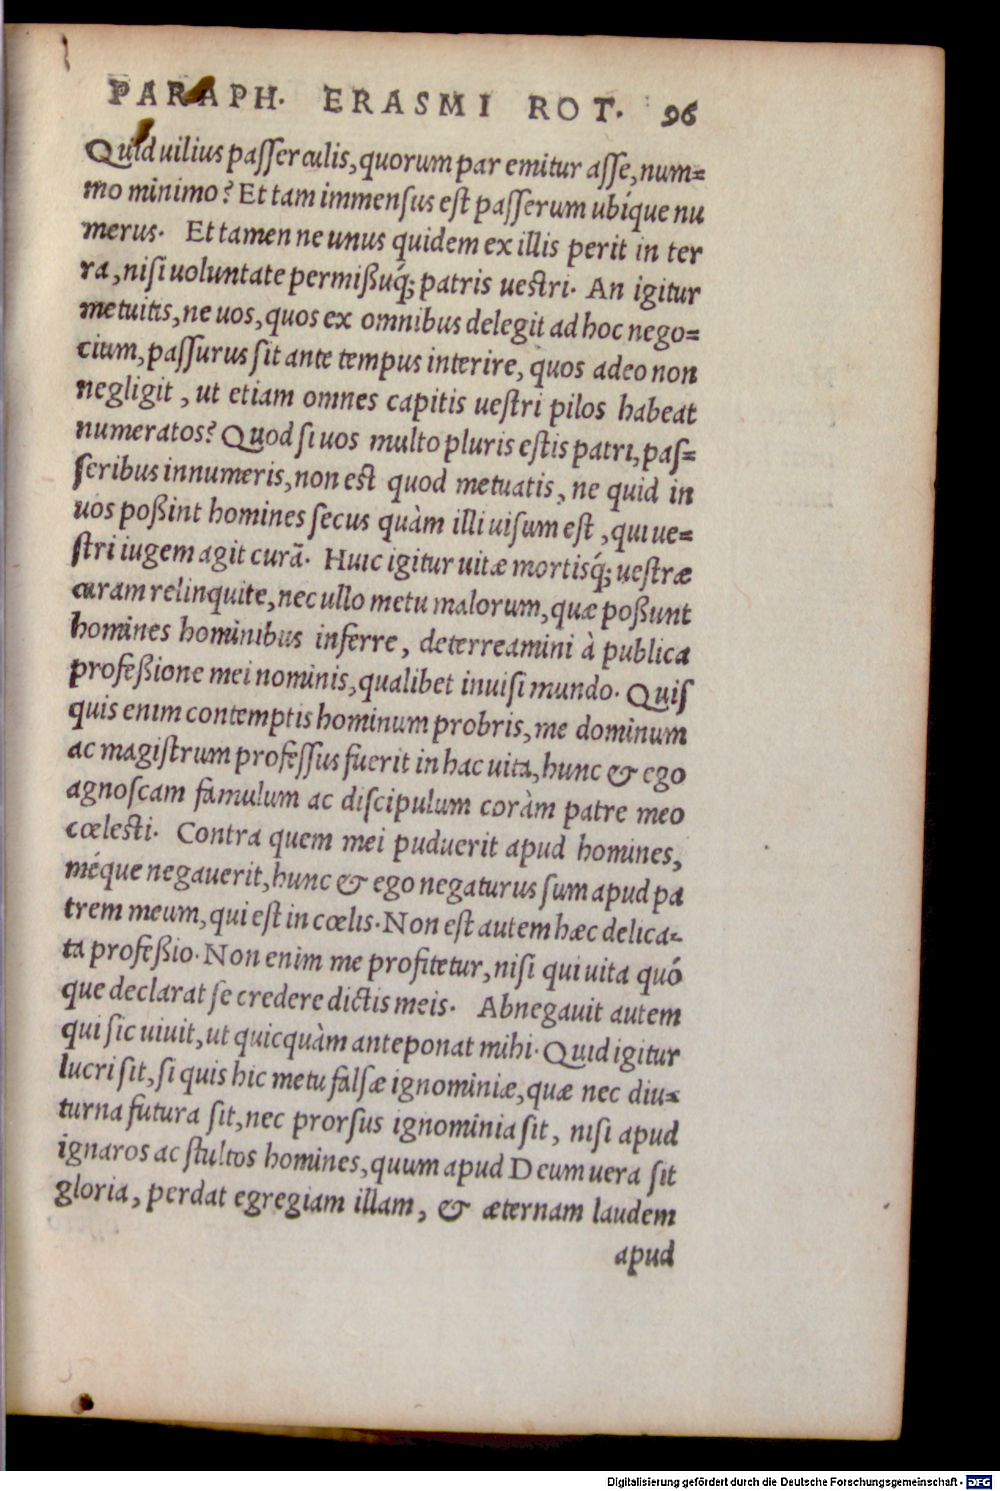 PARAPH. ERASMI ROT. 96
Quid uilius passerculis, quorum par emitur asse, num=
mo minimo? Et tam immensus est passerum ubíque nu
merus. Et tamen ne unus quidem ex illis perit in ter
ra, nisi uoluntate permißuq́; patris uestri. An igitur
metuitis, ne uos, quos ex omnibus delegit ad hoc nego=
cium, passurus sit ante tempus interire, quos adeo non
negligit, ut etiam omnes capitis uestri pilos habeat
numeratos? Quod si uos multo pluris estis patri, pas=
seribus innumeris, non est quod metuatis, ne quid in
uos poßint homines secus quàm illi uisum est, qui ue=
stri iugem agit curā. Huic igitur uitæ mortisq́; uestræ
curam relinquite, nec ullo metu malorum, quæ poßunt
homines hominibus inferre, deterreamini à publica
profeßione mei nominis, qualibet inuisi mundo. Quis
quis enim contemptis hominum probris, me dominum
ac magistrum professus fuerit in hac uita, hunc & ego
agnoscam famulum ac discipulum coràm patre meo
cœlesti. Contra quem mei puduerit apud homines,
méque negauerit, hunc & ego negaturus sum apud pa
trem meum, qui est in cœlis. Non est autem hæc delica-
ta profeßio. Non enim me profitetur, nisi qui uita quó
que declarat se credere dictis meis. Abnegauit autem
qui sic uiuit, ut quicquàm anteponat mihi. Quid igitur
lucri sit, si quis hic metu falsæ ignominiæ, quæ nec diu=
turna futura sit, nec prorsus ignominia sit, nisi apud
ignaros ac stultos homines, quum apud Deum uera sit
gloria, perdat egregiam illam, & æternam laudem
apud
Digitalisierung gefördert durch die Deutsche Forschungsgemeinschaft - DFG